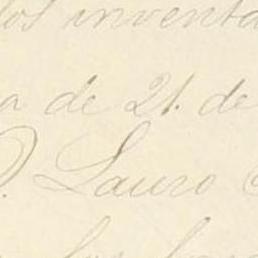 los inventa
a de 21. de
D. Lauro
los